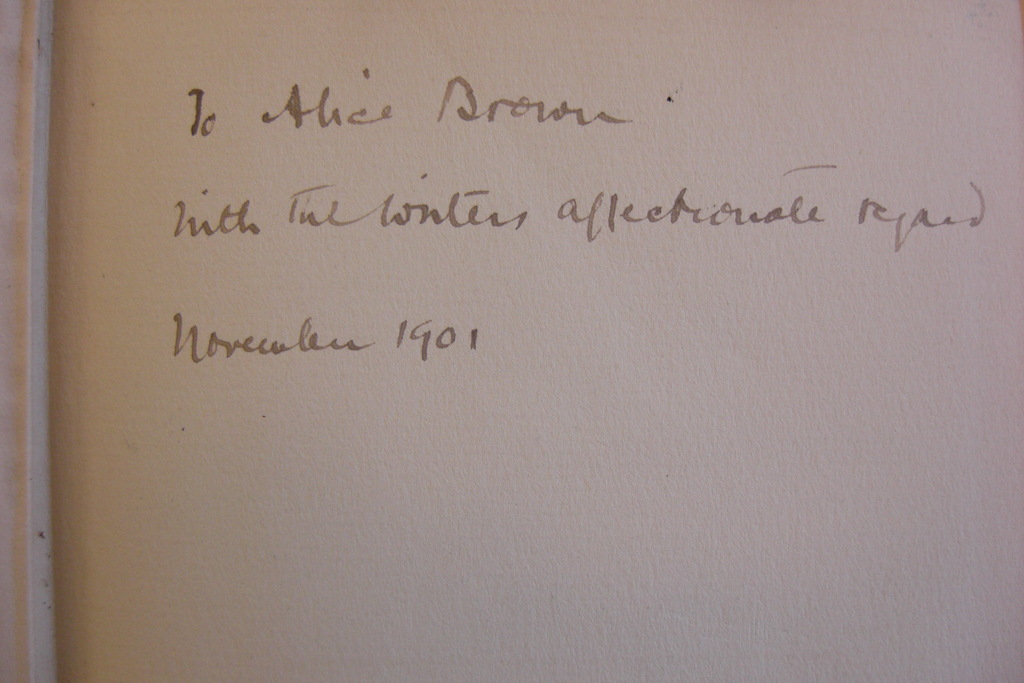 To Alice Brown
with the writers affectionate regard
November 1901